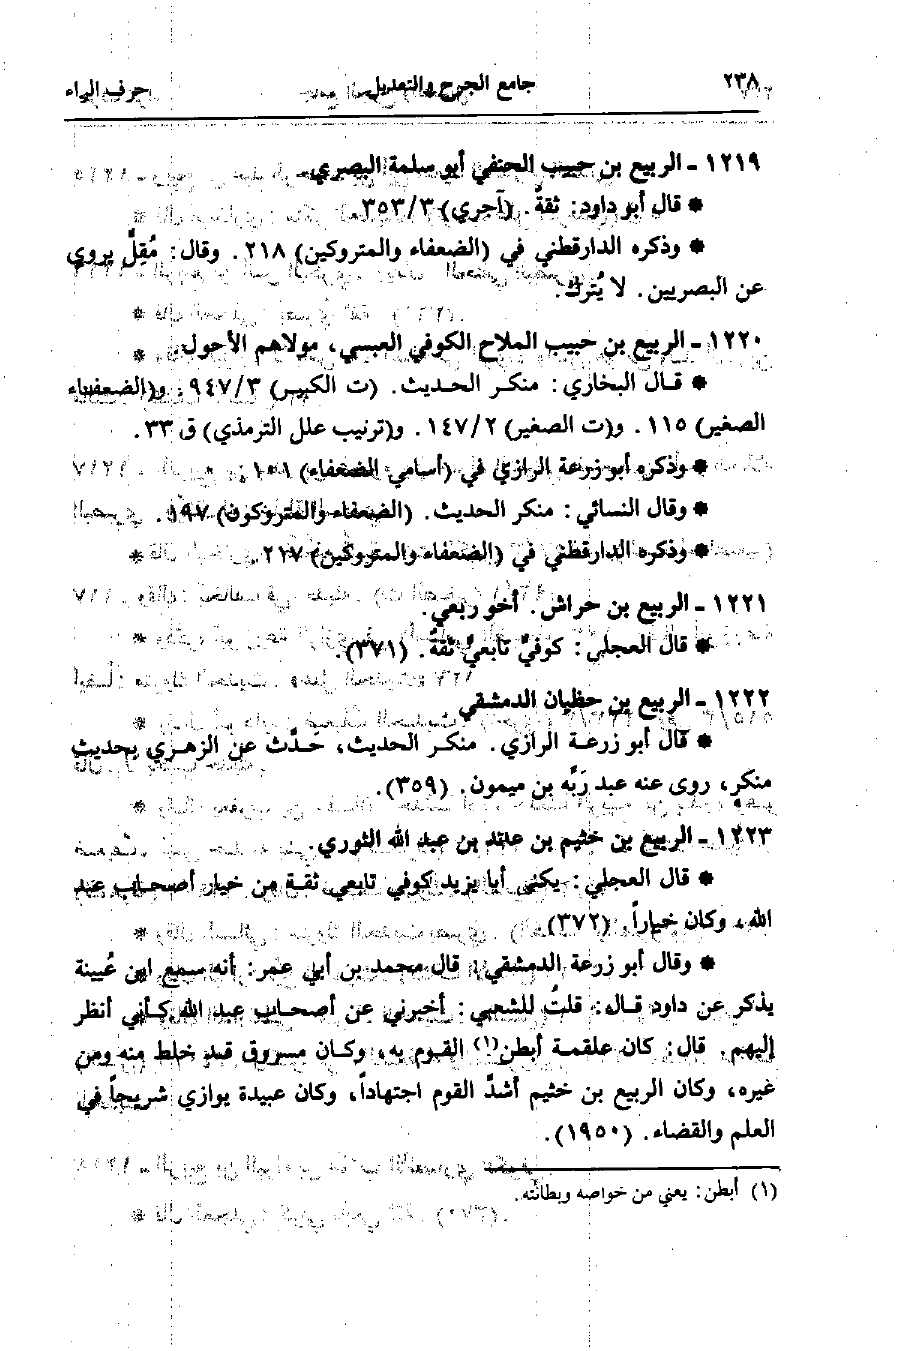 ٢٣٨ جامع الجرح والتعديل حرف الراء
١٢١٩ - الربيع بن حبيب الحنفي أبو سلمة البصري.
* قال أبو داود: ثقةٌ. (آجري) ٣/٣٥٣.
* وذكره الدارقطني في (الضعفاء والمتروكين) ٢١٨. وقال: مُقِلٌّ يروي
عن البصريين. لا يُترك.
١٢٢٠ - الربيع بن حبيب الملاح الكوفي العبسي، مولاهم الأحول.
* قال البخاري: منكر الحديث. (ت الكبير) ٣/٩٤٧. و(الضعفاء
الصغير) ١١٥. و(ت الصغير) ٢/١٤٧. و(ترتيب علل الترمذي) ق ٣٣.
* وذكره أبو زرعة الرازي في (أسامي الضعفاء) ١٠١.
* وقال النسائي: منكر الحديث. (الضعفاء والمتروكون) ١٩٧.
* وذكره الدارقطني في (الضعفاء والمتروكين) ٢١٧.
١٢٢١ - الربيع بن حراش. أخو ربعي.
* قال العجلي: كوفيٌّ تابعيٌّ ثقةٌ. (٣٧١).
١٢٢٢ - الربيع بن حظيان الدمشقي
* قال أبو زرعة الرازي. منكر الحديث، حَدَّث عن الزهري بحديث
منكر، روى عنه عبد رَبِّه بن ميمون. (٣٥٩).
١٢٢٣ - الربيع بن خثيم بن عائذ بن عبد الله الثوري.
* قال العجلي: يكنى أبا يزيد كوفي تابعي ثقة من خيار أصحاب عبد
الله، وكان خياراً. (٣٧٢)
* وقال أبو زرعة الدمشقي: قال محمد بن أبي عمر: أنه سمع ابن عُيينة
يذكر عن داود قال: قلتُ للشعبي: أخبرني عن أصحاب عبد الله كأني أنظر
إليهم. قال: كان علقمة أبطن(١) القوم به، وكان مسروق قد خلط منه ومن
غيره، وكان الربيع بن خثيم أشدَّ القوم اجتهاداً، وكان عبيدة يوازي شريحاً في
العلم والقضاء. (١٩٥٠).
(١) أبطن: يعني من خواصه وبطانته.